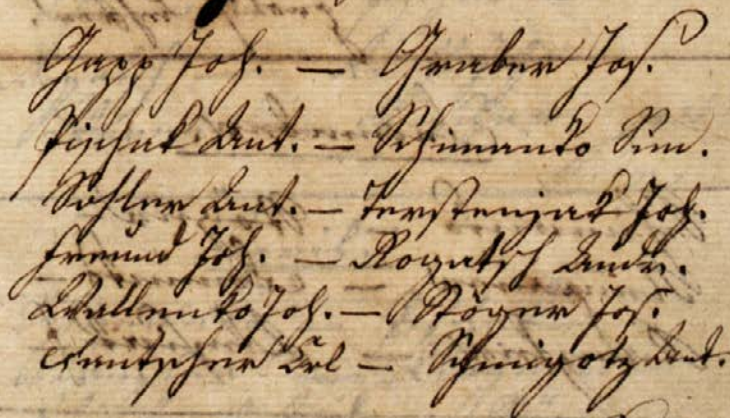 Gapp Joh. — Graber Jos.
Pischak Ant. — Schmanko Sim.
Sohler Ant. — Terstenjak Joh.
Freund Joh. — Rogatsch Andr.
Wallenko Joh. — Stöger Jos.
Crl — Schmigotz Ant.